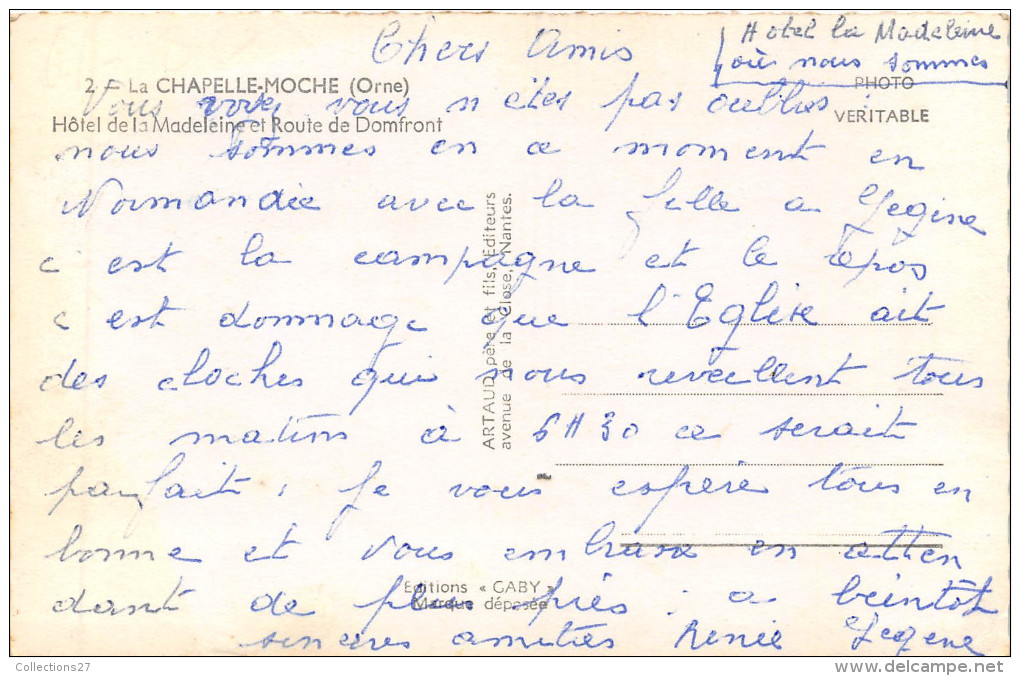 Hotel la Madeleine
où nous sommes
Chers Amis
2 - La CHAPELLE-MOCHE (Orne)
PHOTO
Vous voyez vous n'êtes pas oubliés :
Hôtel de la Madeleine et Route de Domfront
VERITABLE
nous sommes en ce moment en
Normandie avec la fille a
c est la campagne et le repos
c est dommage que l'Eglise ait
des cloches qui nous reveillent tous
les matins à 6H30 ce serait
parfait : Je vous espère tous en
bonne et vous embrasse en atten
dant de plus près : a beintôt
sincères amitiés Renée
ARTAUD père et fils, Editeurs
avenue de la Close, Nantes.
Editions « GABY »
Marque déposée
Collections27
delcampe.net